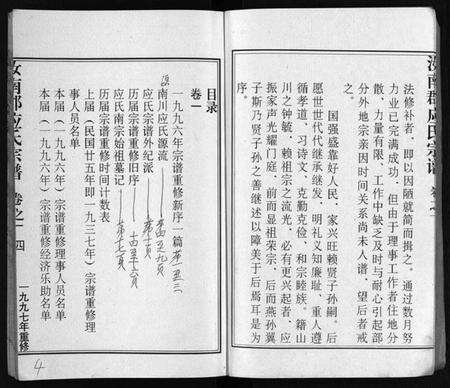 汝南郡应氏宗谱 卷之一
法修补者，即以因陋就简而揖之。通过数月努
力业已完满成功，但由于理事工作者住地分
散、力量有限、工作中缺乏及时与耐心引起部
分外地宗亲因时间关系尚未入谱，望后者戒
之。
国强盛靠好人民、家兴旺赖贤子孙嗣。后
愿世世代代继承继发、明礼义知廉耻、重人遵
循孝道、习诗文、克勤克俭、和宗睦族。籍山
川之钟毓、赖祖宗之流光、必有更兴起者、应
振家声光耀门庭，前而显祖荣宗、后而燕孙翼
子斯乃贤子孙之善继述以障美于后焉耳是为
序。
目录
卷一
一九九六年宗谱重修新序一篇
汝南川应氏源流
应氏宗谱外纪派
历届宗谱重修旧序
应氏南宗始祖墓记
历届宗谱重修时间计数表
上届（民国廿五年即一九三七年）宗谱重修理
事人员名单
本届（一九九六年）宗谱重修理事人员名单
本届（一九九六年）宗谱重修经济乐助名单
汝南郡应氏宗谱 卷之一 四
一九九七年重修
4